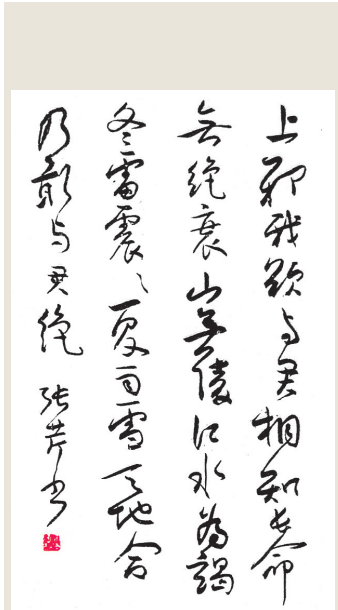 上邪我欲与君相知长命
无绝衰山无陵江水为竭
冬雷震々夏雨雪天地合
乃敢与君绝 张芹书